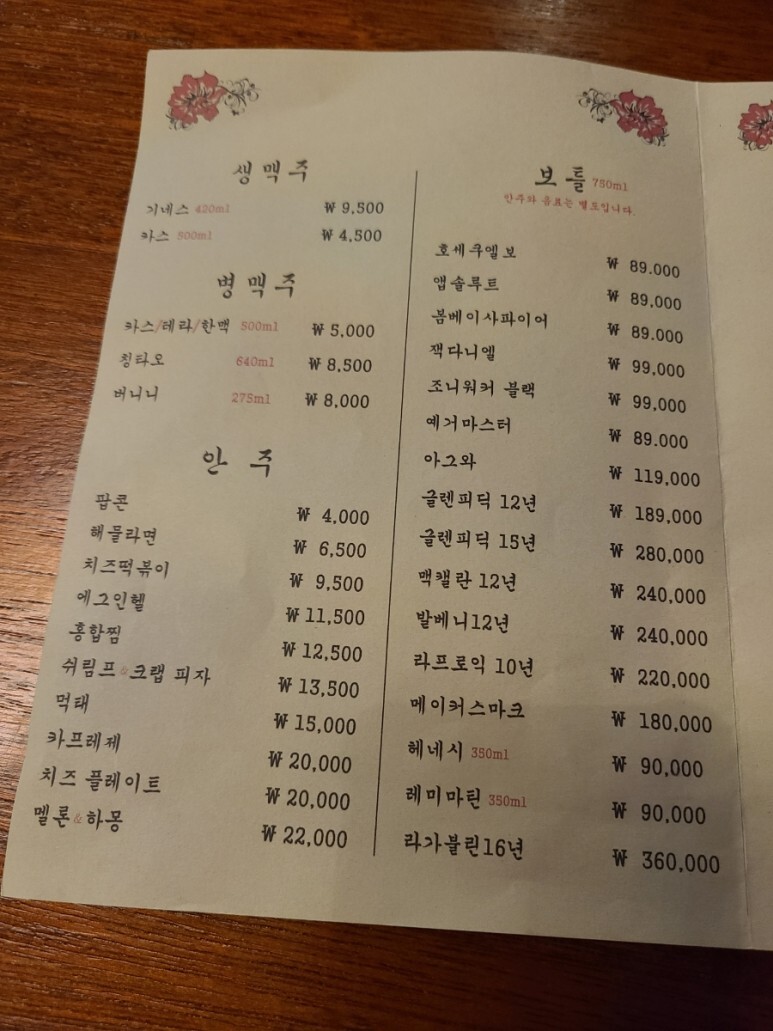 생맥주
기네스 420ml ₩ 9,500
카스 500ml ₩ 4,500
병맥주
카스/테라/한맥 500ml ₩ 5,000
칭타오 640ml ₩ 8,500
버니니 275ml ₩ 8,000
안 주
팝콘 ₩ 4,000
해물라면 ₩ 6,500
치즈떡볶이 ₩ 9,500
에그인헬 ₩ 11,500
홍합찜 ₩ 12,500
쉬림프&크랩 피자 ₩ 13,500
먹태 ₩ 15,000
카프레제 ₩ 20,000
치즈 플레이트 ₩ 20,000
멜론&하몽 ₩ 22,000
보틀 750ml
안주와 음료는 별도입니다.
호세쿠엘보 ₩ 89.000
앱솔루트 ₩ 89.000
봄베이사파이어 ₩ 89.000
잭다니엘 ₩ 99,000
조니워커 블랙 ₩ 99,000
예거마스터 ₩ 89.000
아그와 ₩ 119,000
글렌피딕 12년 ₩ 189,000
글렌피딕 15년 ₩ 280,000
맥캘란 12년 ₩ 240,000
발베니12년 ₩ 240,000
라프로익 10년 ₩ 220,000
메이커스마크 ₩ 180,000
헤네시 350ml ₩ 90,000
레미마틴 350ml ₩ 90,000
라가불린16년 ₩ 360,000